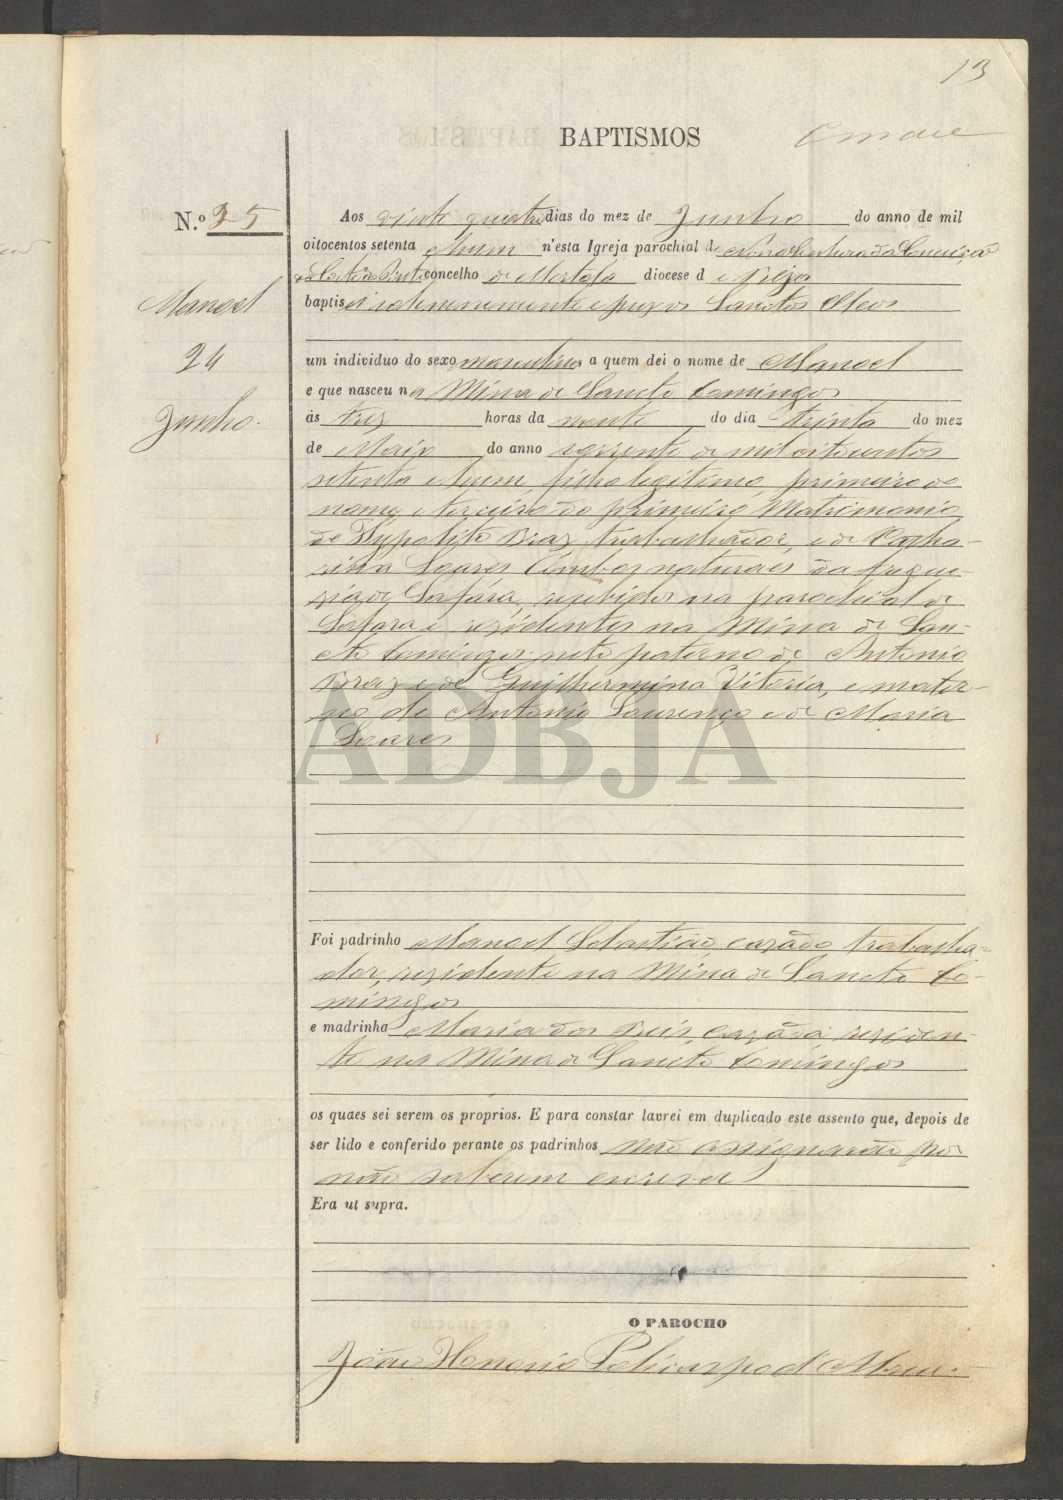 13
BAPTISMOS
N.º 35
Aos vinte quatro dias do mez de Junho do anno de mil
oitocentos setenta e hum n'esta Igreja parochial de da Conceiçaõ
concelho de Mertola diocese d e Beja
Manoel
baptisei solemnemente e puz os Sanctos Oleos
24
um individuo do sexo masculino a quem dei o nome de Manoel
e que nasceu na Mina de Sancto Comingos
Junho.
ás trez horas da noute do dia trinta do mez
de Maio do anno corrente de mil oitocentos
setenta e hum, filho legitimo, primeiro do
nome e terceiro do primeiro Matrimonio
de Hypolito Braz, trabalhador, e de Catha-
rina Soares Ambos naturaes da fregue-
zia de Safára, recebidos na parochial de
Safara e rezidentes na Mina de San-
cto Comingos: neto paterno de Antonio
Braz e de Guilhermina Vitoria, e mater-
no de Antonio Lourenço e de Maria
Soares
ADBJA
Foi padrinho Manoel Sebastiaõ, cazado, trabalha-
dor, rezidente na Mina de Sancto Co-
mingos
e madrinha Maria dos Reis, cazada reziden-
te na Mina de Sancto Comingos
os quaes sei serem os proprios. E para constar lavrei em duplicado este assento que, depois de
ser lido e conferido perante os padrinhos naõ assignaraõ por
naõ saberem escrever
Era ut supra.
O PAROCHO
Joaõ Honorio Policarpo d'